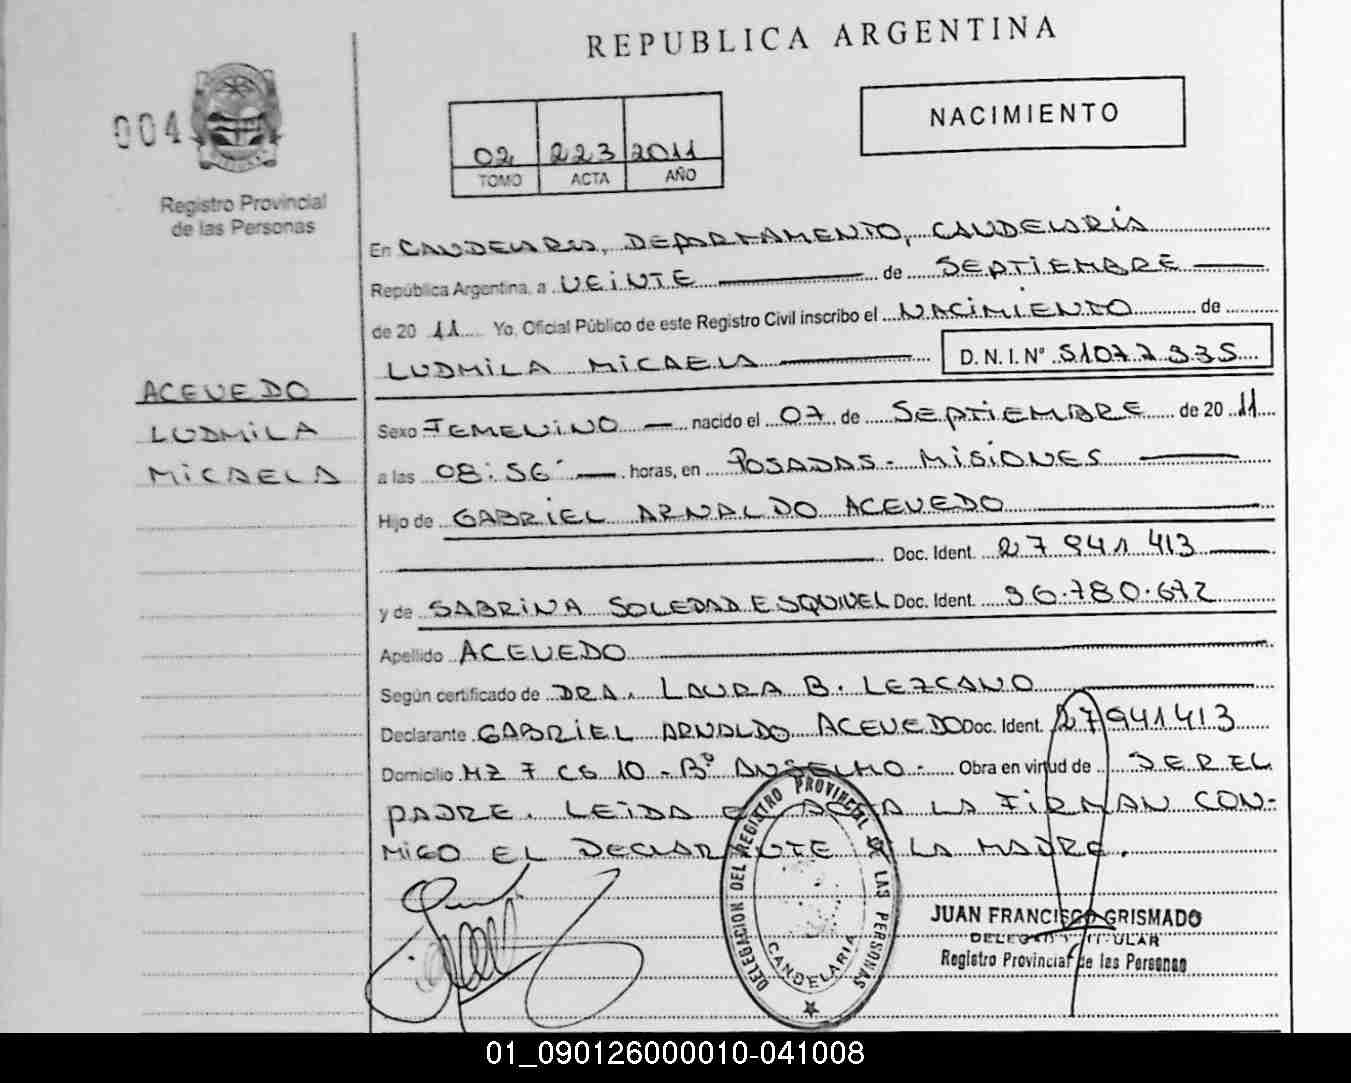 REPUBLICA ARGENTINA
004
Registro Provincial
de las Personas
02 223 2011
TOMO ACTA AÑO
NACIMIENTO
En CANDELARIA, DEPARTAMENTO, CANDELARIA
República Argentina, a VEINTE de SEPTIEMBRE
de 20 11 Yo, Oficial Público de este Registro Civil inscribo el NACIMIENTO de
LUDMILA MICAELA D.N.I. Nº 51077335
ACEVEDO
LUDMILA
MICAELA
Sexo FEMENINO nacido el 07 de SEPTIEMBRE de 20 11
a las 08:56 horas, en POSADAS - MISIONES
Hijo de GABRIEL ARNALDO ACEVEDO
Doc. Ident. 27941413
y de SABRINA SOLEDAD ESQUIVEL Doc. Ident. 36.780.672
Apellido ACEVEDO
Según certificado de DRA. LAURA B. LEZCANO
Declarante GABRIEL ARNALDO ACEVEDO Doc. Ident. 27941413
Domicilio MZ 7 CS 10 - Bº ANSELMO - Obra en virtud de SER EL
PADRE. LEIDA EL ACTA LA FIRMAN CON-
MIGO EL DECLARANTE Y LA MADRE.
DELEGACION DEL REGISTRO PROVINCIAL DE LAS PERSONAS
CANDELARIA
JUAN FRANCISCO GRISMADO
DELEGADO TITULAR
Registro Provincial de las Personas
01_090126000010-041008